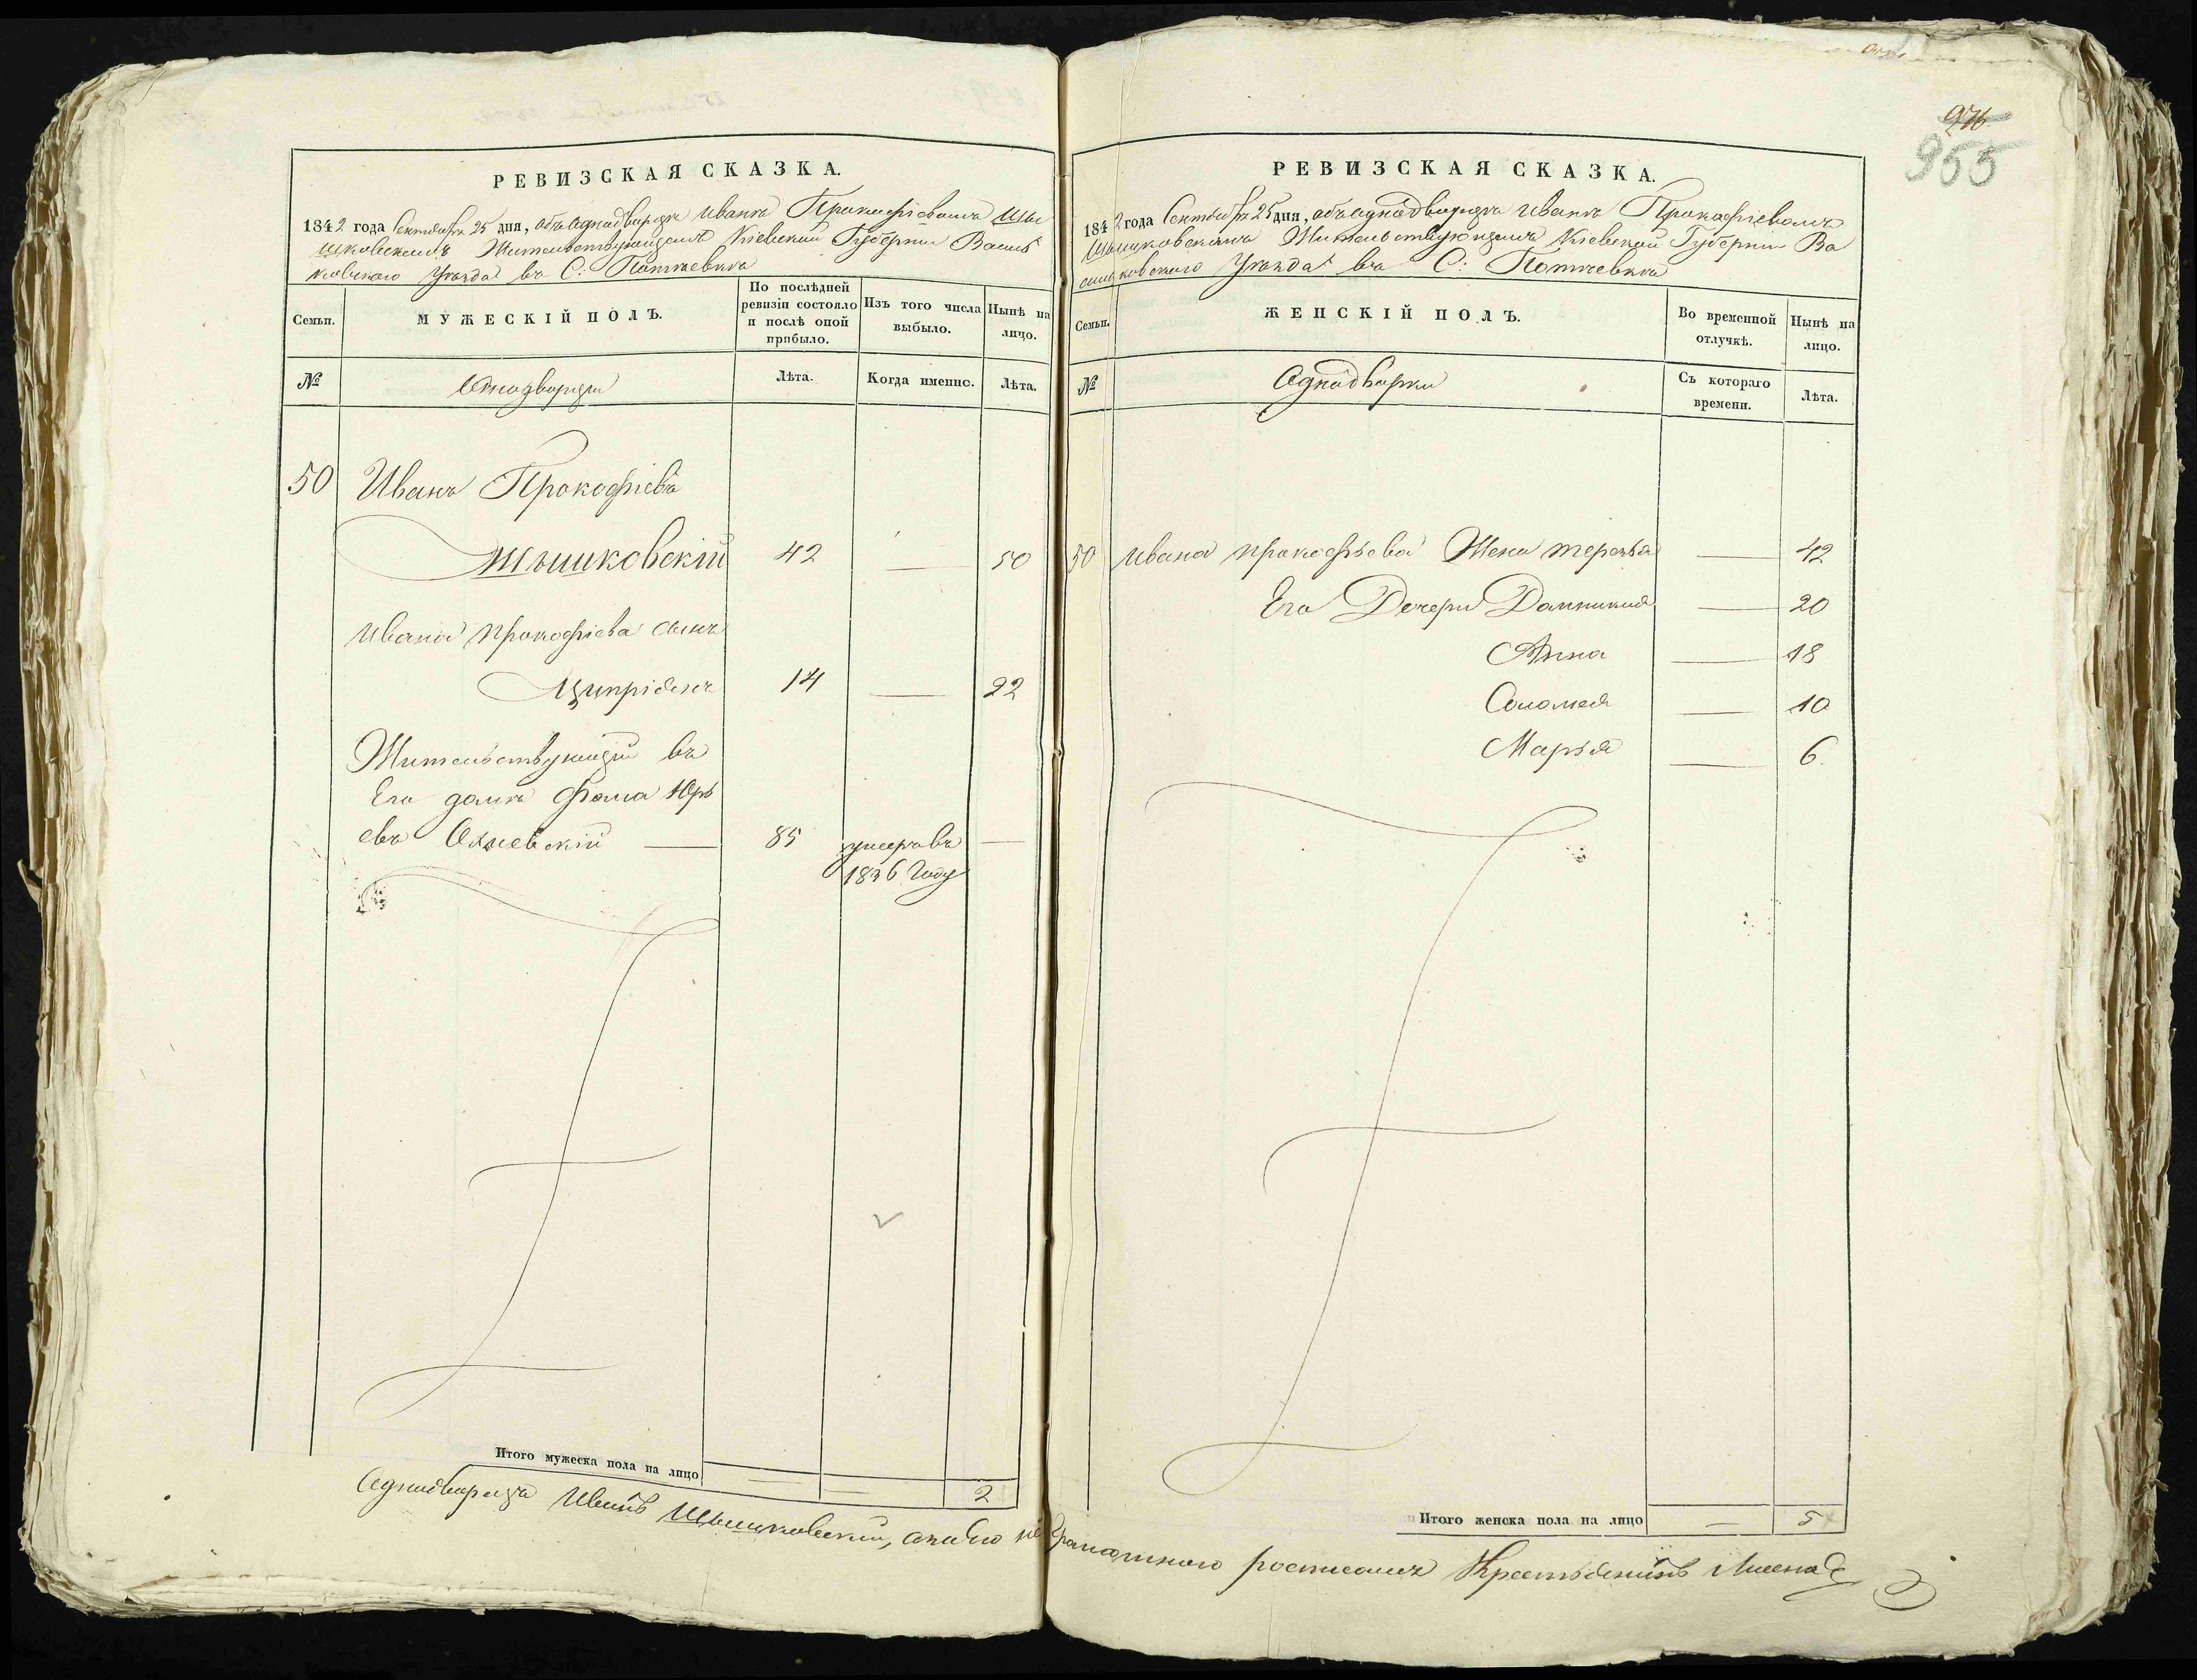 976
955
РЕВИЗСКАЯ СКАЗКА.
1842 года Сентября 25 дня, объ аднадворце Иване Прокофіевомъ Шы
шковскомъ Жительствующемъ Кіевской Губерніи Василь
ковского Уезда въ С:
Семьи.
МУЖЕСКІЙ ПОЛЪ.
По послѣдней ревизіи состояло и послѣ оной прибыло.
Изъ того числа выбыло.
Нынѣ на лицо.
№
Однодворцы
Лѣта.
Когда именно.
Лѣта.
50 Иванъ Прокофіевъ
Шышковскій 42 — 50
Ивана Прокофіева сынъ
Ципріянъ 14 — 22
Жительствующій въ
Его доме Фома Юрь
евъ — 85 умеръ въ —
1836 Году
Итого мужеска пола на лицо — — 2
РЕВИЗСКАЯ СКАЗКА.
1842 года Сентября 25 дня, объ аднадворце Иване Прокофіевомъ
Шышковскомъ Жительствующемъ Кіевской Губерніи Ва
сильковского Уезда въ С:
Семьи.
ЖЕНСКІЙ ПОЛЪ.
Во временной отлучкѣ.
Нынѣ на лицо.
№
Аднадворки
Съ котораго времени.
Лѣта.
50 Ивана Прокофьева Жена Терезья — 42
Его Дочери — 20
Анна — 18
Соломея — 10
Марья — 6.
Итого женска пола на лицо — 5
Аднодворецъ Иванъ Шышковскій, а за него неграмотного росписался Крестьянинъ